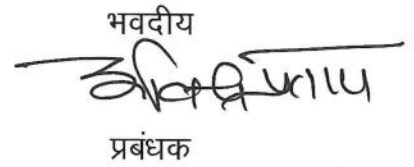 भवदीय
प्रबंधक